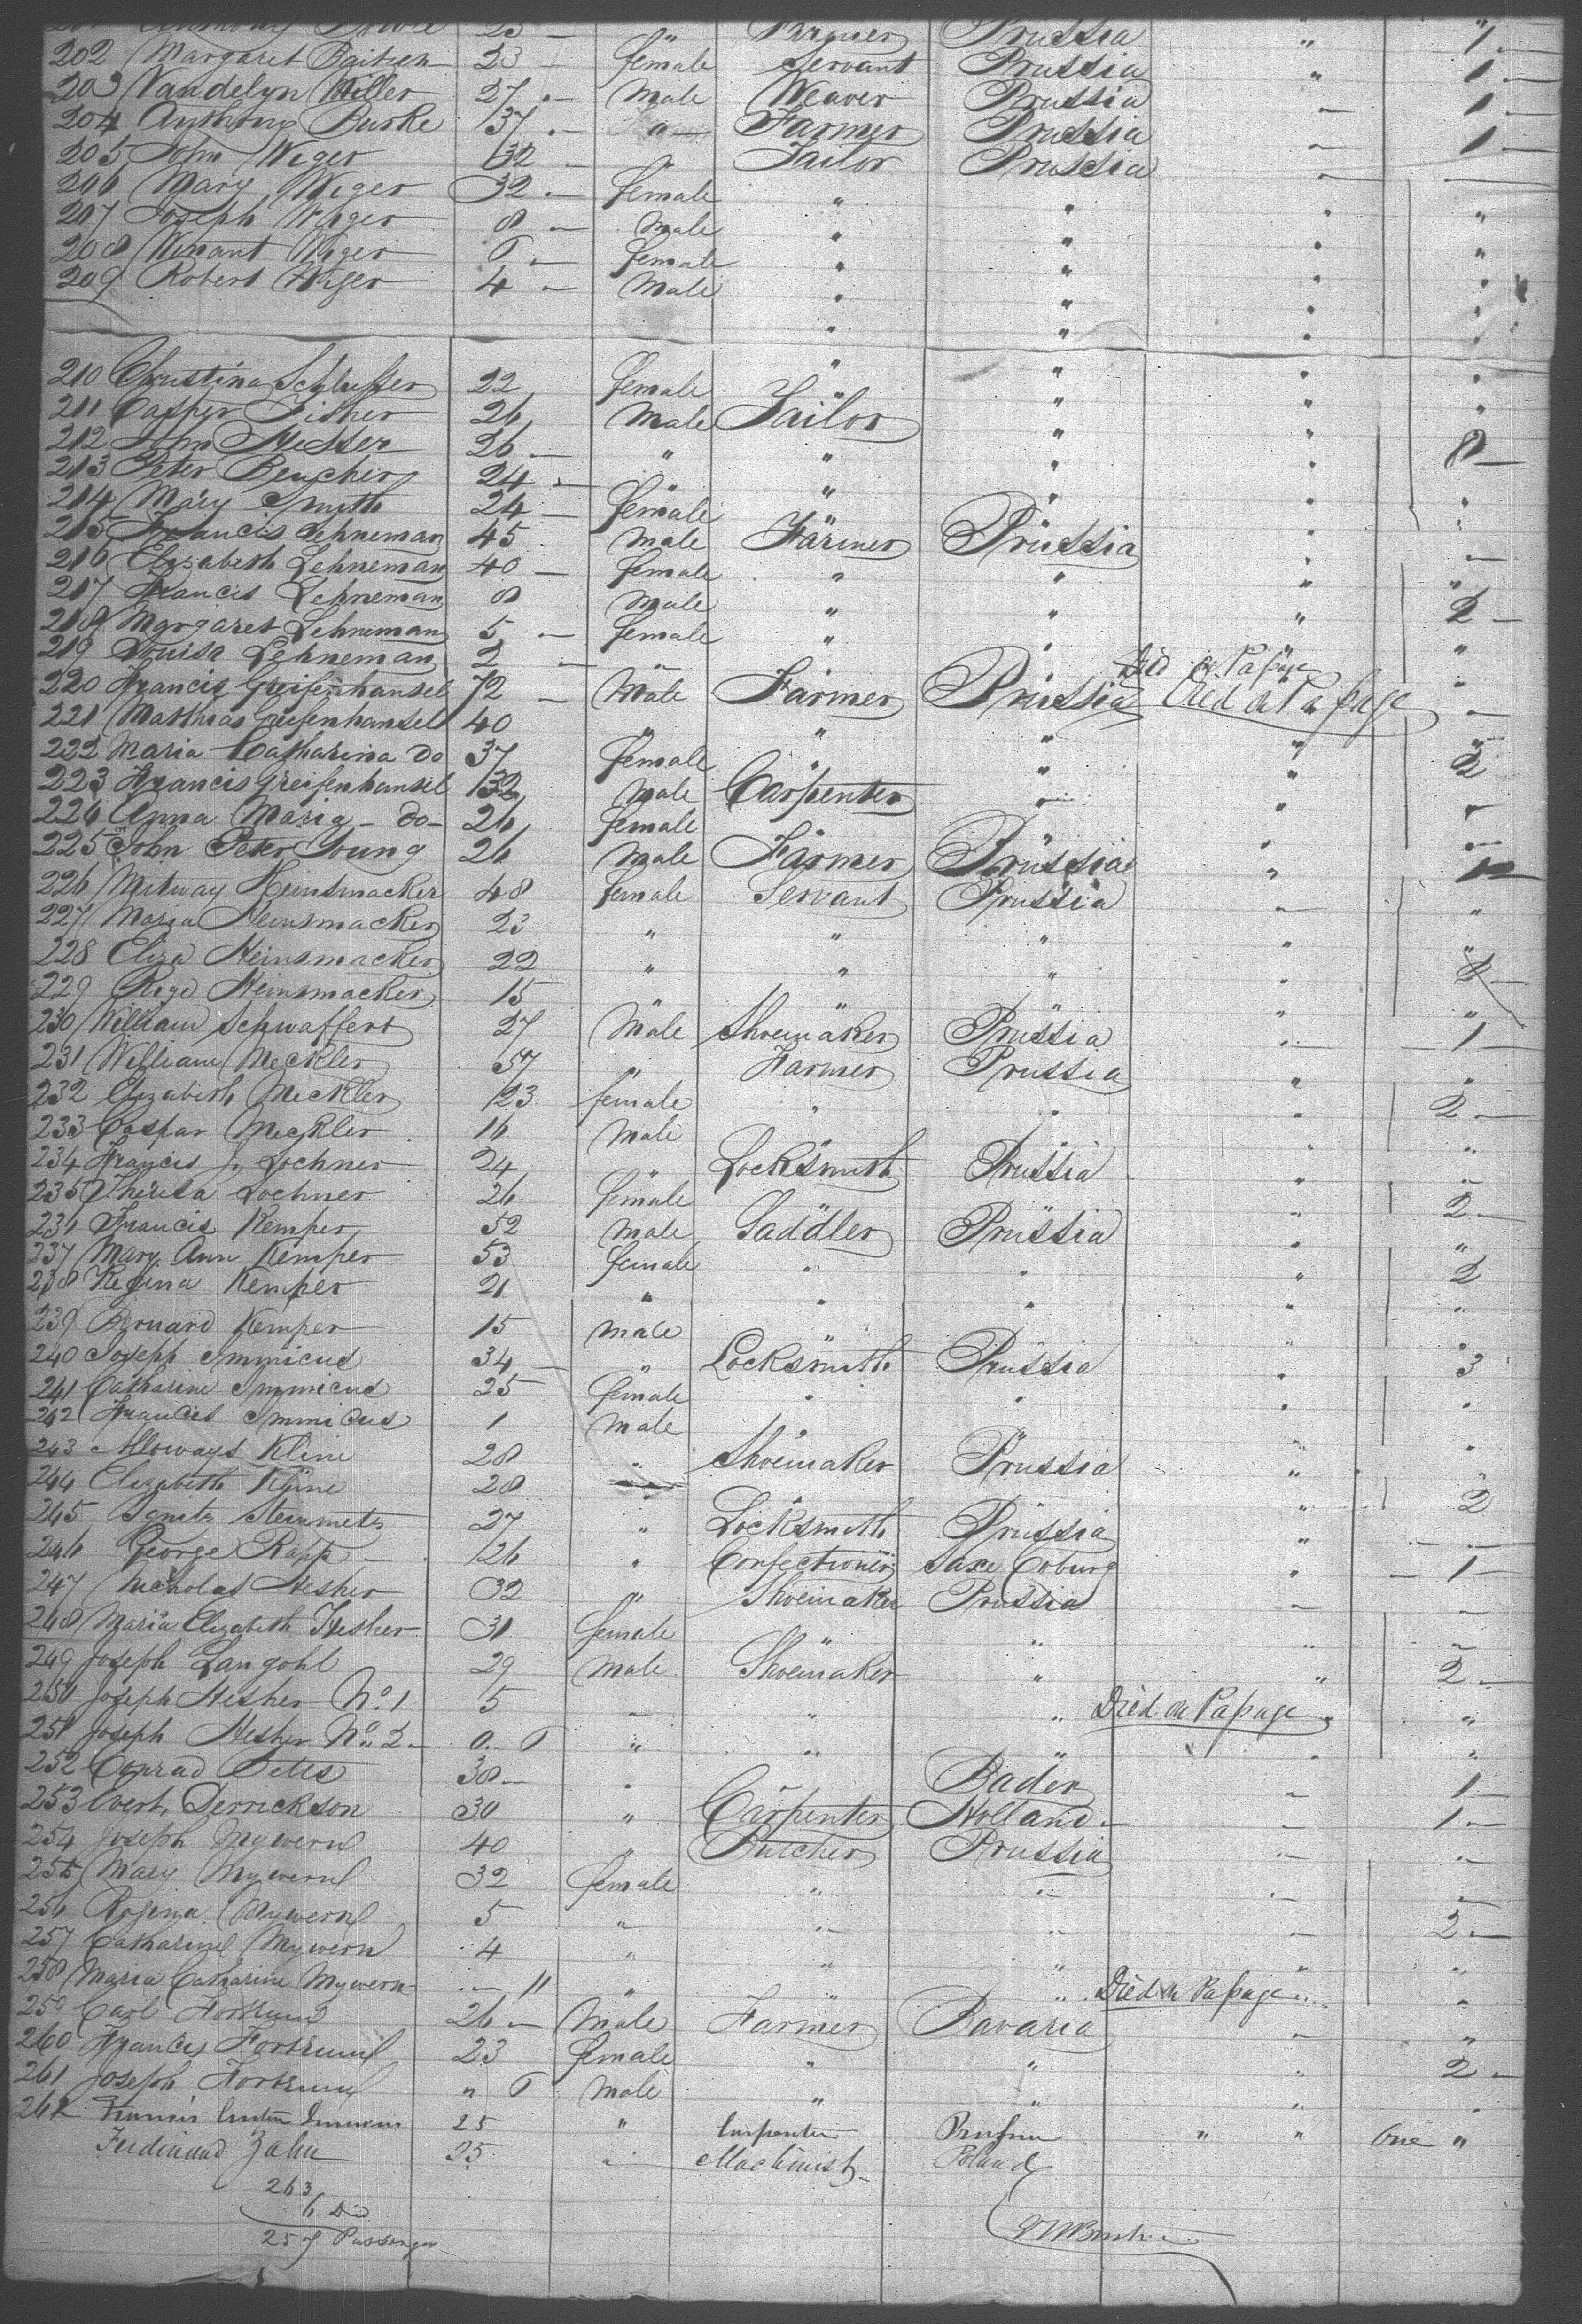 23 — " Farmer Prussia " 1 —
202 Margaret 23 — female Servant Prussia " 1 —
203 Vandelyn Miller 27 — Male Weaver Prussia — 1 —
204 Anthony Burke 37 — " — Farmer Prussia — 1 —
205 John Weger 32 — " Tailor Prussia — —
206 Mary Weger 32 — female " " " "
207 Joseph Weger 8 — Male " " " "
208 Winant Weger 6 — female " " " "
209 Robert Weger 4 — Male " " " "
210 Christina 22 female " " " "
211 Casper Fisher 26 Male Tailor " " "
212 John 26 — " " " " 8 —
213 Peter 24 — " " " " "
214 Mary Smith 24 — female " " "
215 Francis Lehneman 45 Male Farmer Prussia " —
216 Elizabeth Lehneman 40 — female " " " "
217 Francis Lehneman 8 Male " " " 2 —
218 Margaret Lehneman 5 — female " " "
219 Louisa Lehneman 2 — " " Did on Passage "
220 Francis Greifenhansel 72 — Male Farmer Prussia Died on Passage —
221 Matthias Greifenhansel 40 " " " " "
222 Maria Catharina Do 37 female " " " 2
223 Francis Greifenhansel 32 Male Carpenter " " "
224 Anna Maria — do — 26 female " " " "
225 John Peter Young 26 Male Farmer Prussia " 1
226 Heinsmacker 48 female Servant Prussia — "
227 Maria Heinsmacker 23 " " " " "
228 Eliza Heinsmacker 22 " " " "
229 Heinsmacker 15 " " " " "
230 William Schwaffert 27 Male Shoemaker Prussia — 1 —
231 William Meckler 57 " Farmer Prussia " "
232 Elizabeth Meckler 23 female " " " 2 —
233 Caspar Meckler 16 Male " " " "
234 Francis J. Lochner 24 " Locksmith Prussia " —
235 Theresa Lochner 26 female " " " 2 —
236 Francis Kemper 52 Male Saddler Prussia " "
237 Mary Ann Kemper 53 female " " " 2
238 Regina Kemper 21 " " " " "
239 Bernard Kemper 15 male " " "
240 Joseph Immicus 34 — " Locksmith Prussia " 3
241 Catharine Immicus 25 female " " " "
242 Francis Immicus 1 Male " " "
243 Alloways Kline 28 " Shoemaker Prussia "
244 Elizabeth Kline 28 — " " " 2
245 Steinmetz 27 " Locksmith Prussia " —
246 George Rapp — 26 " Confectioner Saxe Coburg " — 1 —
247 Nicholas Hesher 32 " Shoemaker Prussia — —
248 Maria Elizabeth Hesher 31 female " " " —
249 Joseph Langohl 29 Male Shoemaker " " 2 —
250 Joseph Hesher No. 1 5 — " " Died on Passage "
251 Joseph Hesher No. 2 — 0. 6 " " " " "
252 Conrad 38 — " Baden — 1 —
253 Evert Derrickson 30 " Carpenter Holland — — 1 —
254 Joseph Mywern 40 " Butcher Prussia — —
255 Mary Mywern 32 female " " — —
256 Rosina Mywern 5 " — — — 2 —
257 Catharine Mywern 4 " " " " "
258 Maria Catharine Mywern — 11 " " " Died on Passage "
259 Carl 26 — Male Farmer Bavaria — "
260 Frances 23 female " " " 2 —
261 Joseph " 6 Male " " " "
262 Francis 25 " Carpenter " " One "
Ferdinand Zahn 25 " Machinist Poland
263
6 Did
257 Passengers